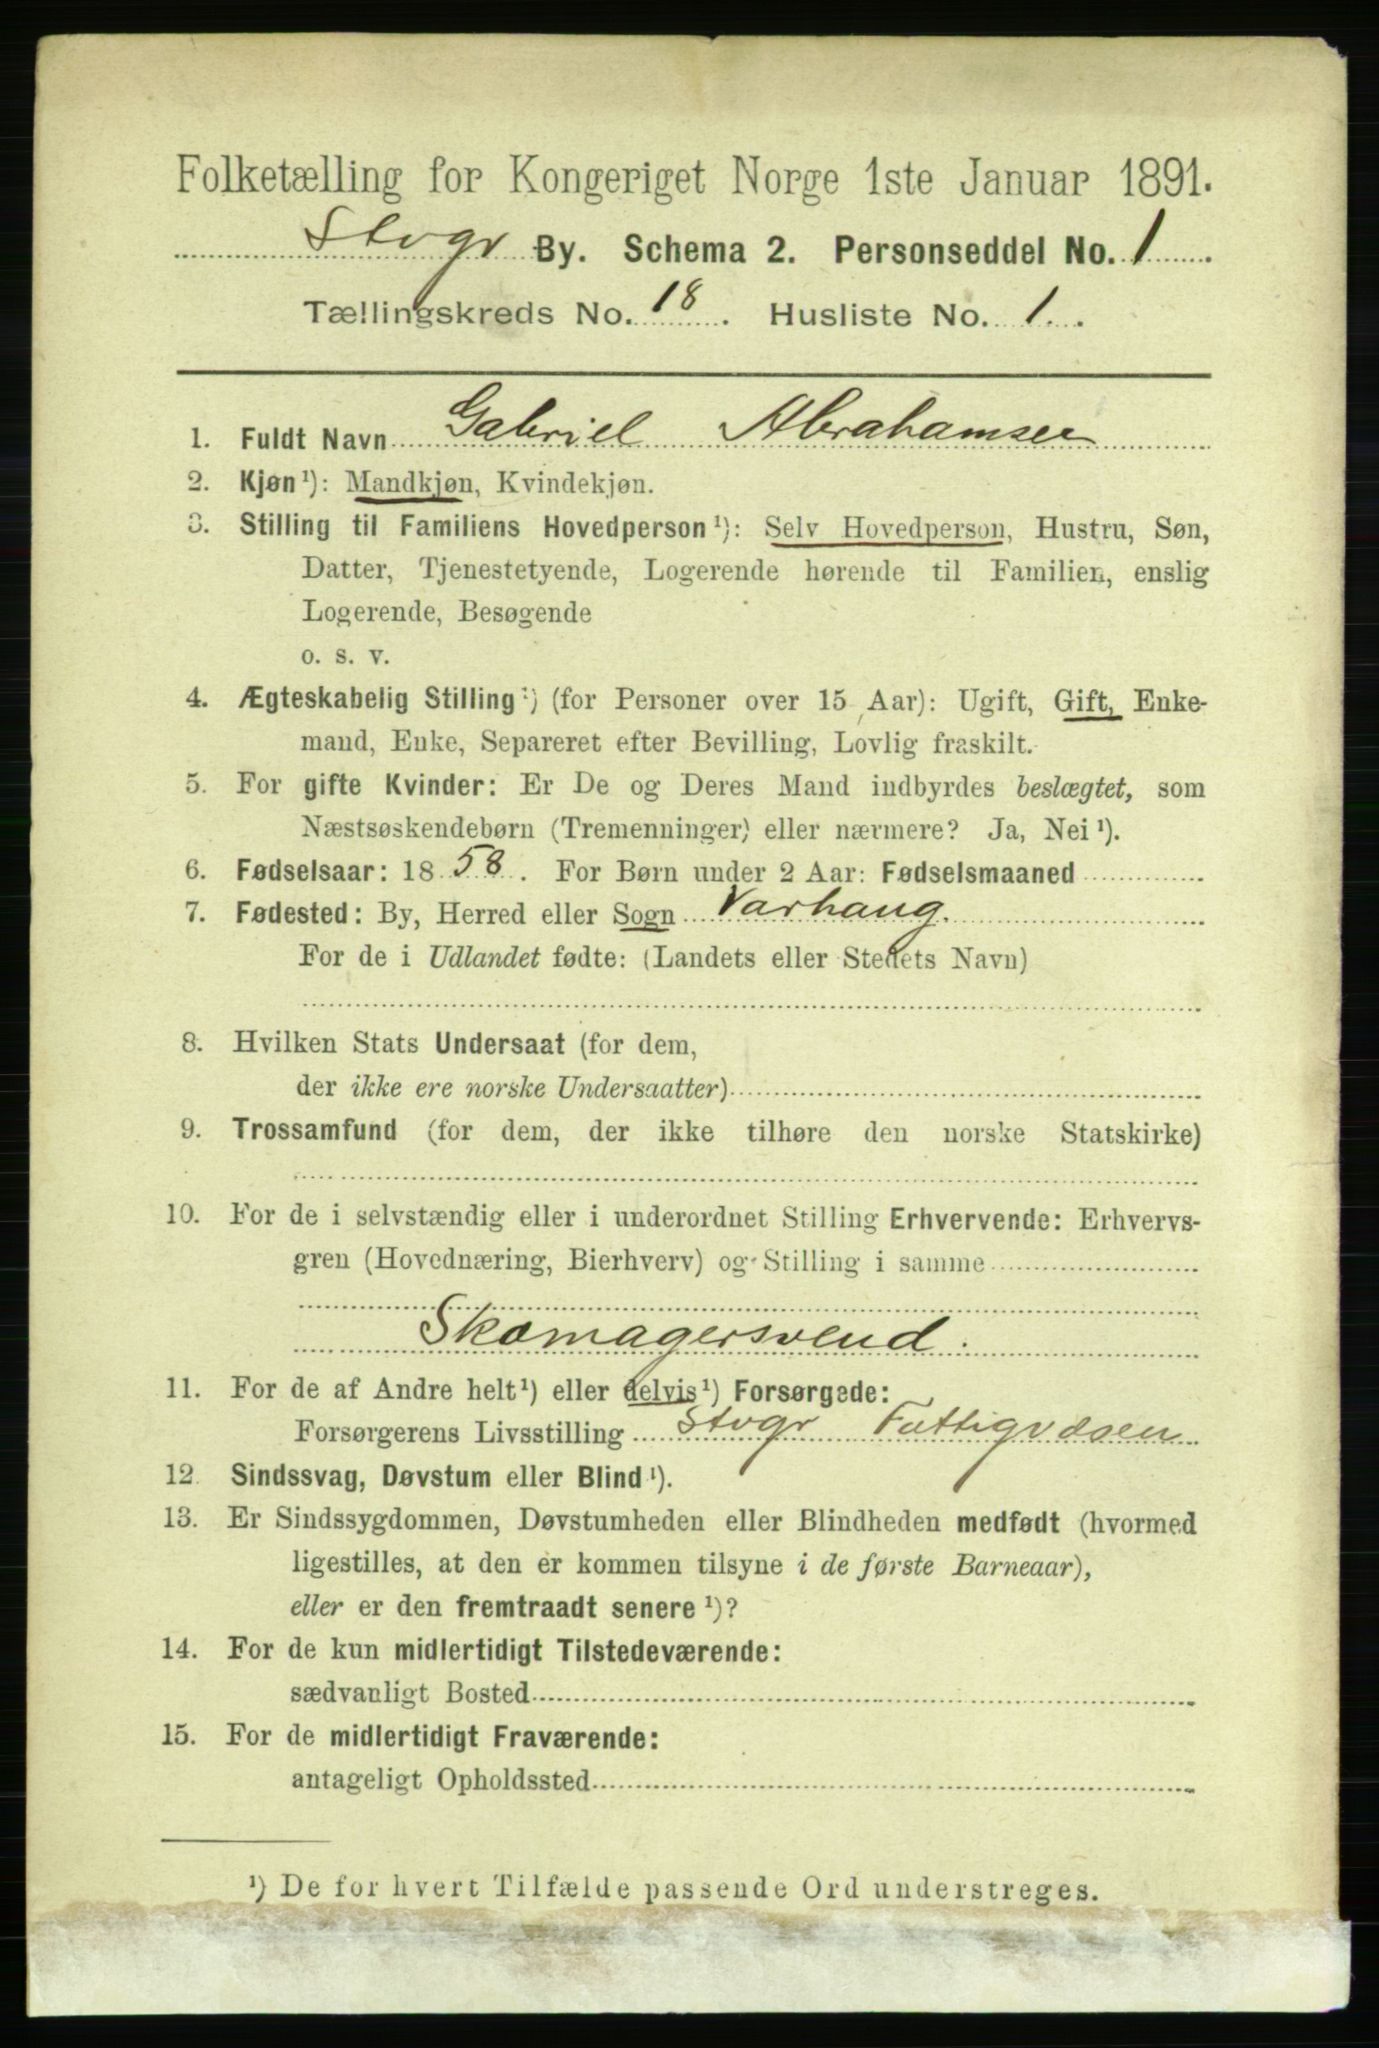 Folketælling for Kongeriget Norge 1ste Januar 1891.
Stvgr By. Schema 2. Personseddel No. 1
Tællingskreds No. 18. Husliste No. 1.
1. Fuldt Navn Gabriel Abrahamsen
2. Kjøn¹): Mandkjøn, Kvindekjøn.
3. Stilling til Familiens Hovedperson¹): Selv Hovedperson, Hustru, Søn,
Datter, Tjenestetyende, Logerende hørende til Familien, enslig
Logerende, Besøgende
o. s. v.
4. Ægteskabelig Stilling¹) (for Personer over 15 Aar): Ugift, Gift, Enke-
mand, Enke, Separeret efter Bevilling, Lovlig fraskilt.
5. For gifte Kvinder: Er De og Deres Mand indbyrdes beslægtet, som
Næstsøskendebørn (Tremenninger) eller nærmere? Ja, Nei¹).
6. Fødselsaar: 1858. For Børn under 2 Aar: Fødselsmaaned
7. Fødested: By, Herred eller Sogn Varhaug.
For de i Udlandet fødte: (Landets eller Stedets Navn)
8. Hvilken Stats Undersaat (for dem,
der ikke ere norske Undersaatter)
9. Trossamfund (for dem, der ikke tilhøre den norske Statskirke)
10. For de i selvstændig eller i underordnet Stilling Erhvervende: Erhvervs-
gren (Hovednæring, Bierhverv) og Stilling i samme
Skomagersvend.
11. For de af Andre helt¹) eller delvis¹) Forsørgede:
Forsørgerens Livsstilling Stvgr Fattigvæsen
12. Sindssvag, Døvstum eller Blind¹).
13. Er Sindssygdommen, Døvstumheden eller Blindheden medfødt (hvormed
ligestilles, at den er kommen tilsyne i de første Barneaar),
eller er den fremtraadt senere¹)?
14. For de kun midlertidigt Tilstedeværende:
sædvanligt Bosted
15. For de midlertidigt Fraværende:
antageligt Opholdssted
¹) De for hvert Tilfælde passende Ord understreges.